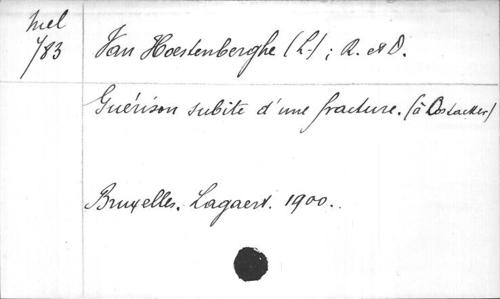 Mel
783
Van Hoestenberghe (L.) ; R. et D.
Guérison subite d'une fracture. (à Oostacker)
Bruxelles. Lagaert. 1900.